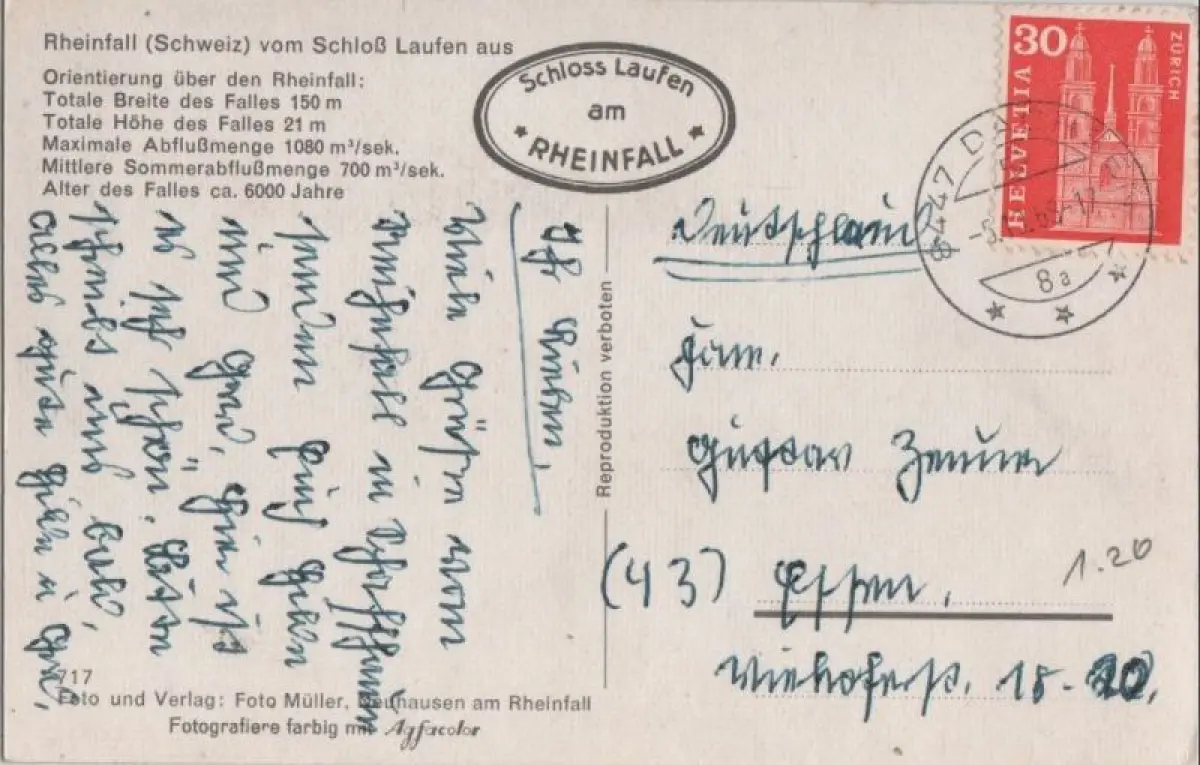 Rheinfall (Schweiz) vom Schloß Laufen aus
Orientierung über den Rheinfall:
Totale Breite des Falles 150 m
Totale Höhe des Falles 21 m
Maximale Abflußmenge 1080 m³/sek.
Mittlere Sommerabflußmenge 700 m³/sek.
Alter des Falles ca. 6000 Jahre
Schloss Laufen
am
RHEINFALL
30
HELVETIA
ZÜRICH
8447 DA
8a
Ihr Lieben,
Viele Grüße vom
Rheinfall in Schaffhausen
senden
und Gerd, hier ist
es sehr schön.
bald,
alles Gute
Reproduktion verboten
Deutschland
Fam.
Gustav
(43) Essen,
Viehoferstr. 18-20,
1.20
717
Foto und Verlag: Foto Müller, Neuhausen am Rheinfall
Fotografiere farbig mit Agfacolor